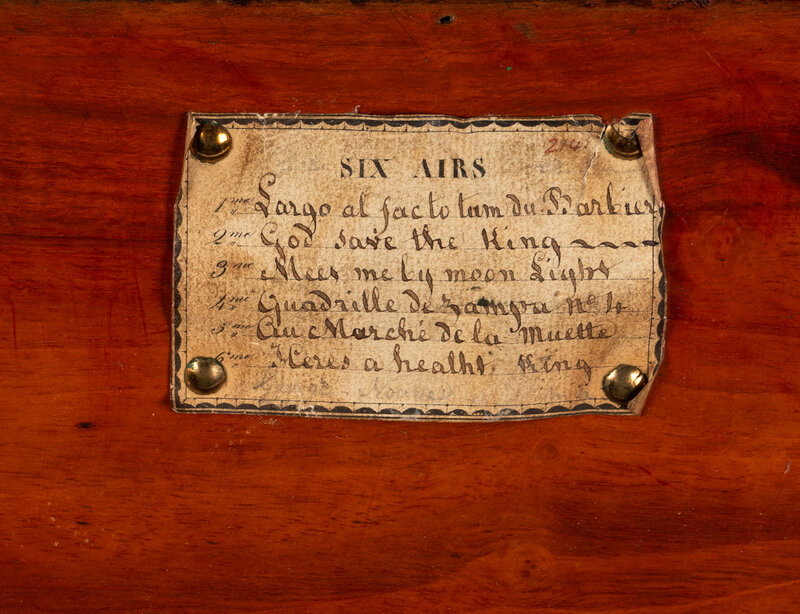 SIX AIRS
1me Largo al factotum du Barbier
2me God save the King
3me Meet me by moon Light
4me Quadrille de Zampa No 4
5me Au Marché de la muette
6me Heres a healht King